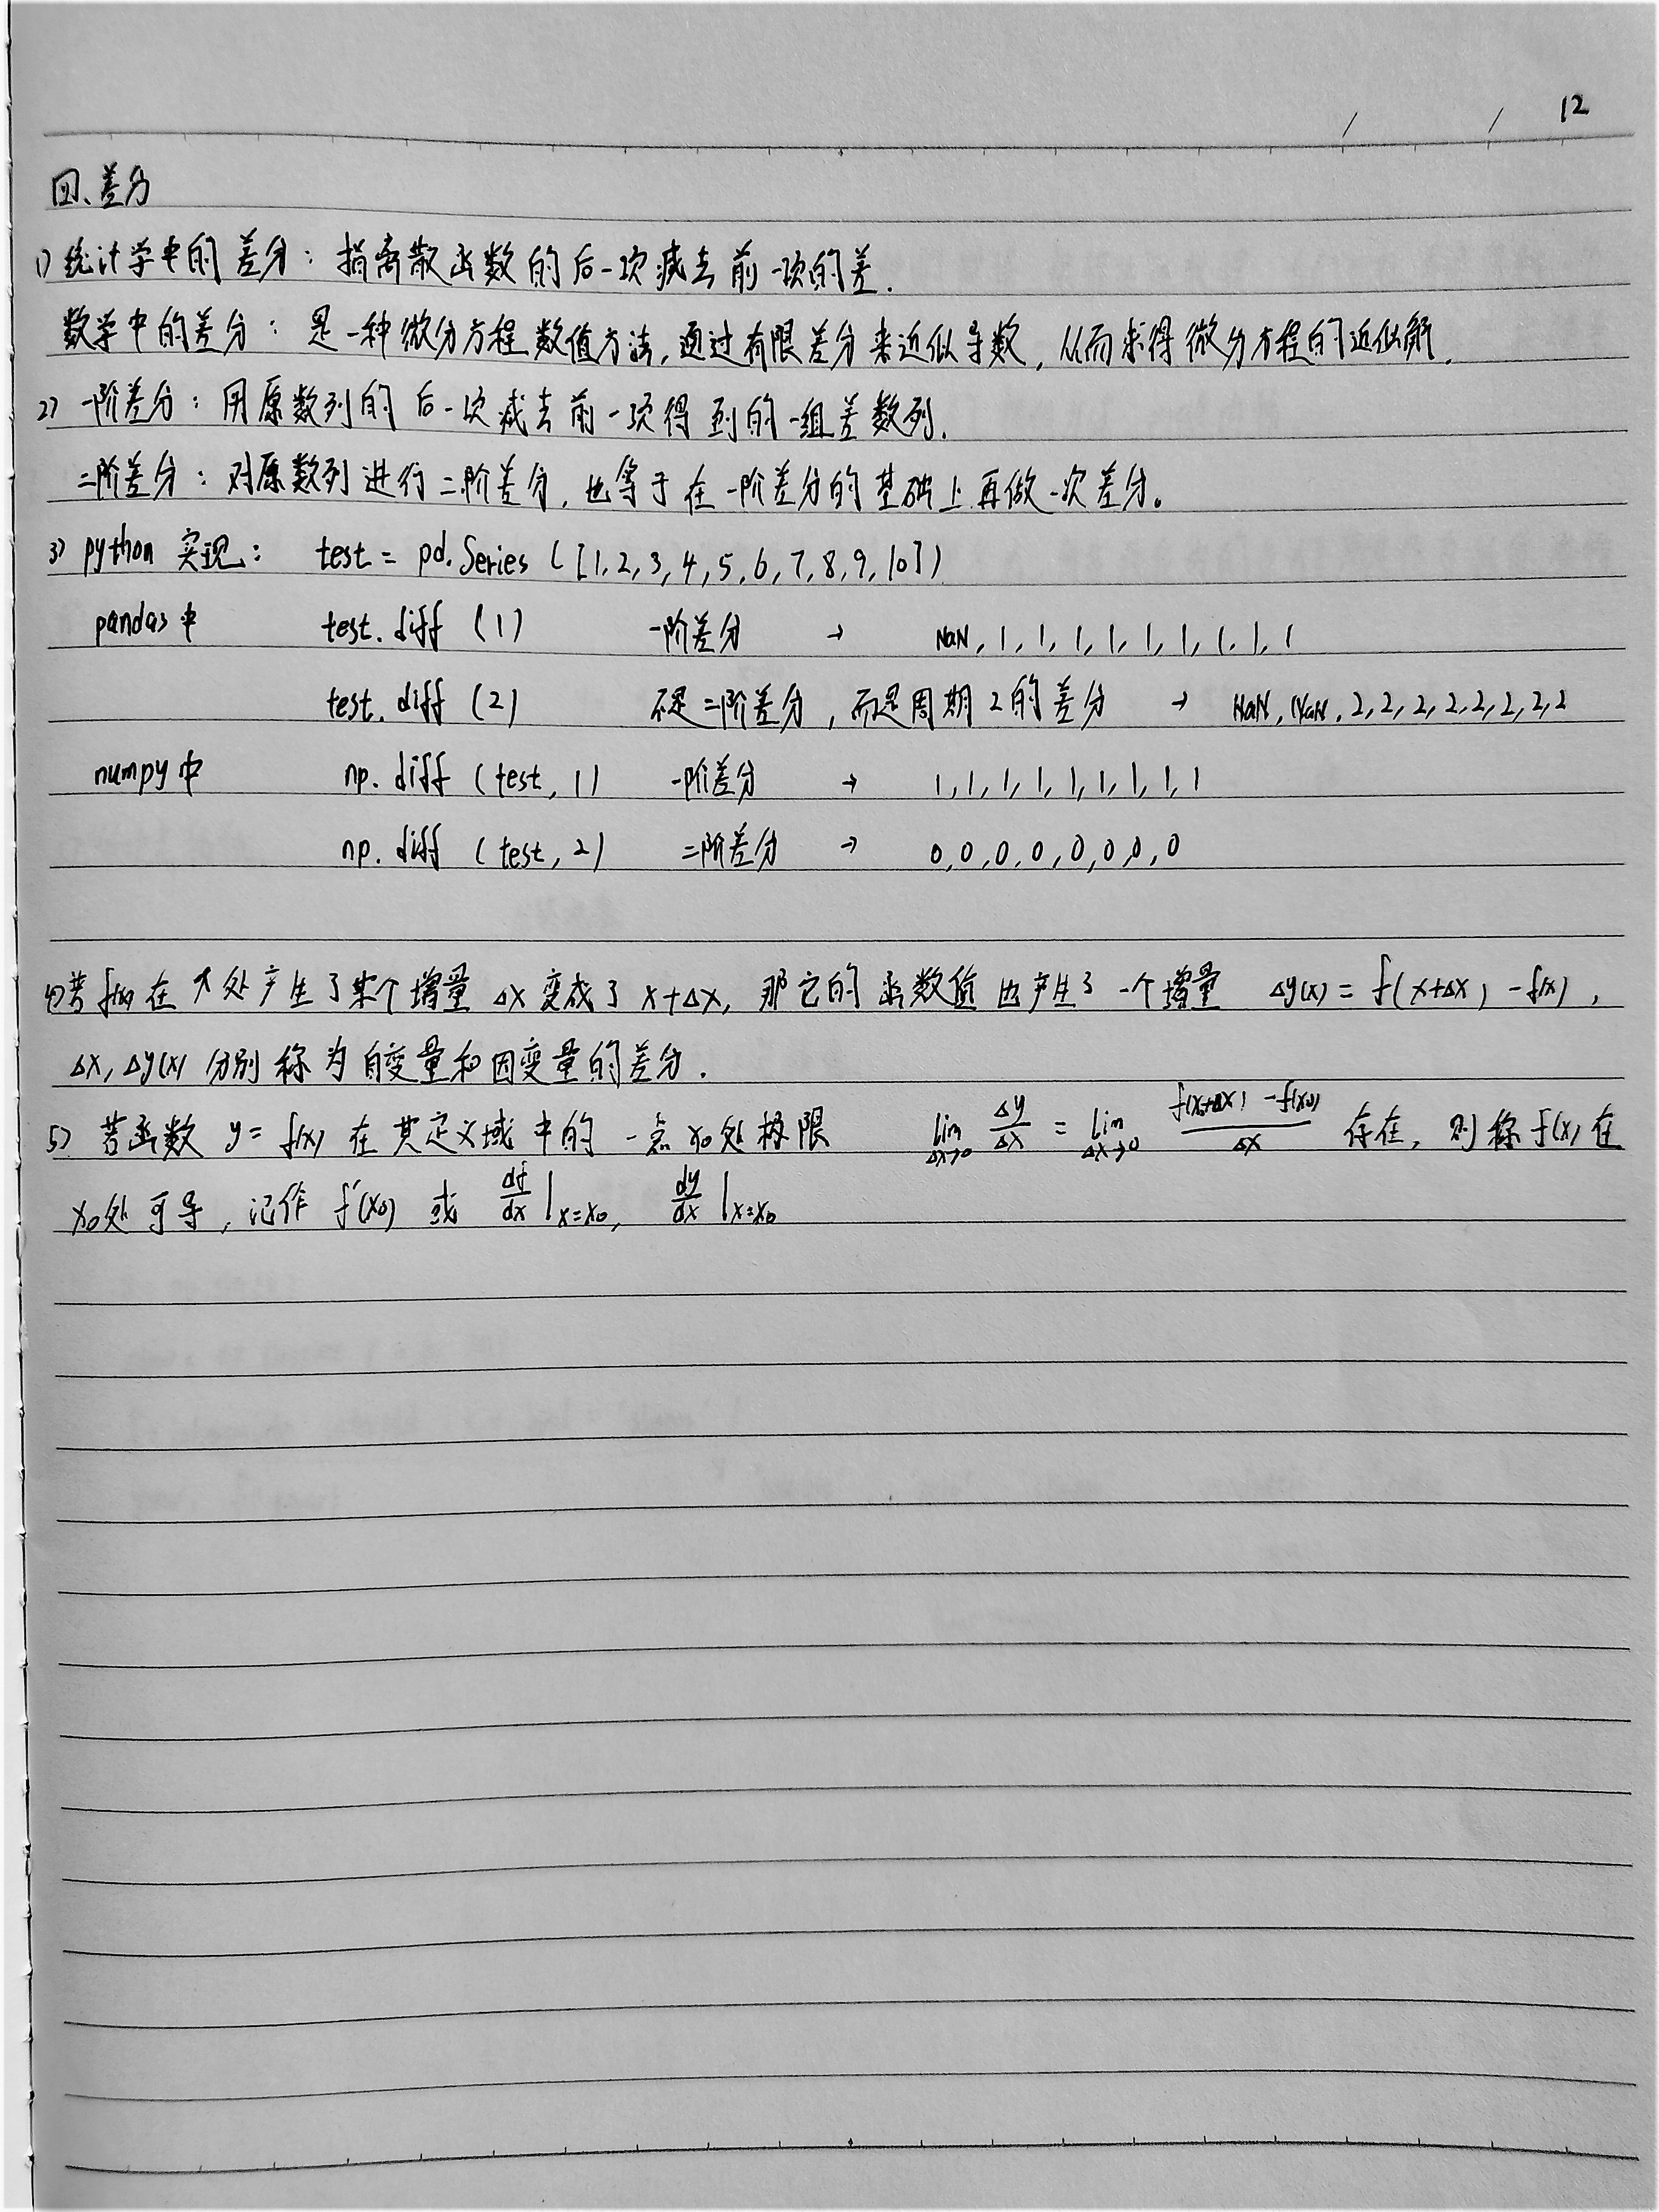 12
四、差分
1) 统计学中的差分：指离散函数的后一次减去前一次的差.
数学中的差分：是一种微分方程数值方法, 通过有限差分来近似导数, 从而求得微分方程的近似解.
2) 一阶差分：用原数列的后一次减去前一项得到的一组差数列.
二阶差分：对原数列进行二阶差分, 也等于在一阶差分的基础上再做一次差分。
3) python 实现： test = pd.Series ([1,2,3,4,5,6,7,8,9,10])
pandas中 test.diff (1) 一阶差分 → NaN,1,1,1,1,1,1,1,1,1
test.diff (2) 不是二阶差分, 而是周期2的差分 → NaN,NaN,2,2,2,2,2,2,2,2
numpy中 np.diff (test,1) 一阶差分 → 1,1,1,1,1,1,1,1,1
np.diff (test,2) 二阶差分 → 0,0,0,0,0,0,0,0
4) 若f(x)在x处产生了某个增量 Δx 变成了 x+Δx, 那它的函数值也产生了一个增量 Δy(x) = f(x+Δx) - f(x),
Δx, Δy(x) 分别称为自变量和因变量的差分.
5) 若函数 y = f(x) 在其定义域中的一点x₀处极限 lim Δx→0 Δy/Δx = lim Δx→0 (f(x₀+Δx) - f(x₀))/Δx 存在, 则称f(x)在
x₀处可导, 记作 f'(x₀) 或 df/dx |x=x₀, dy/dx |x=x₀